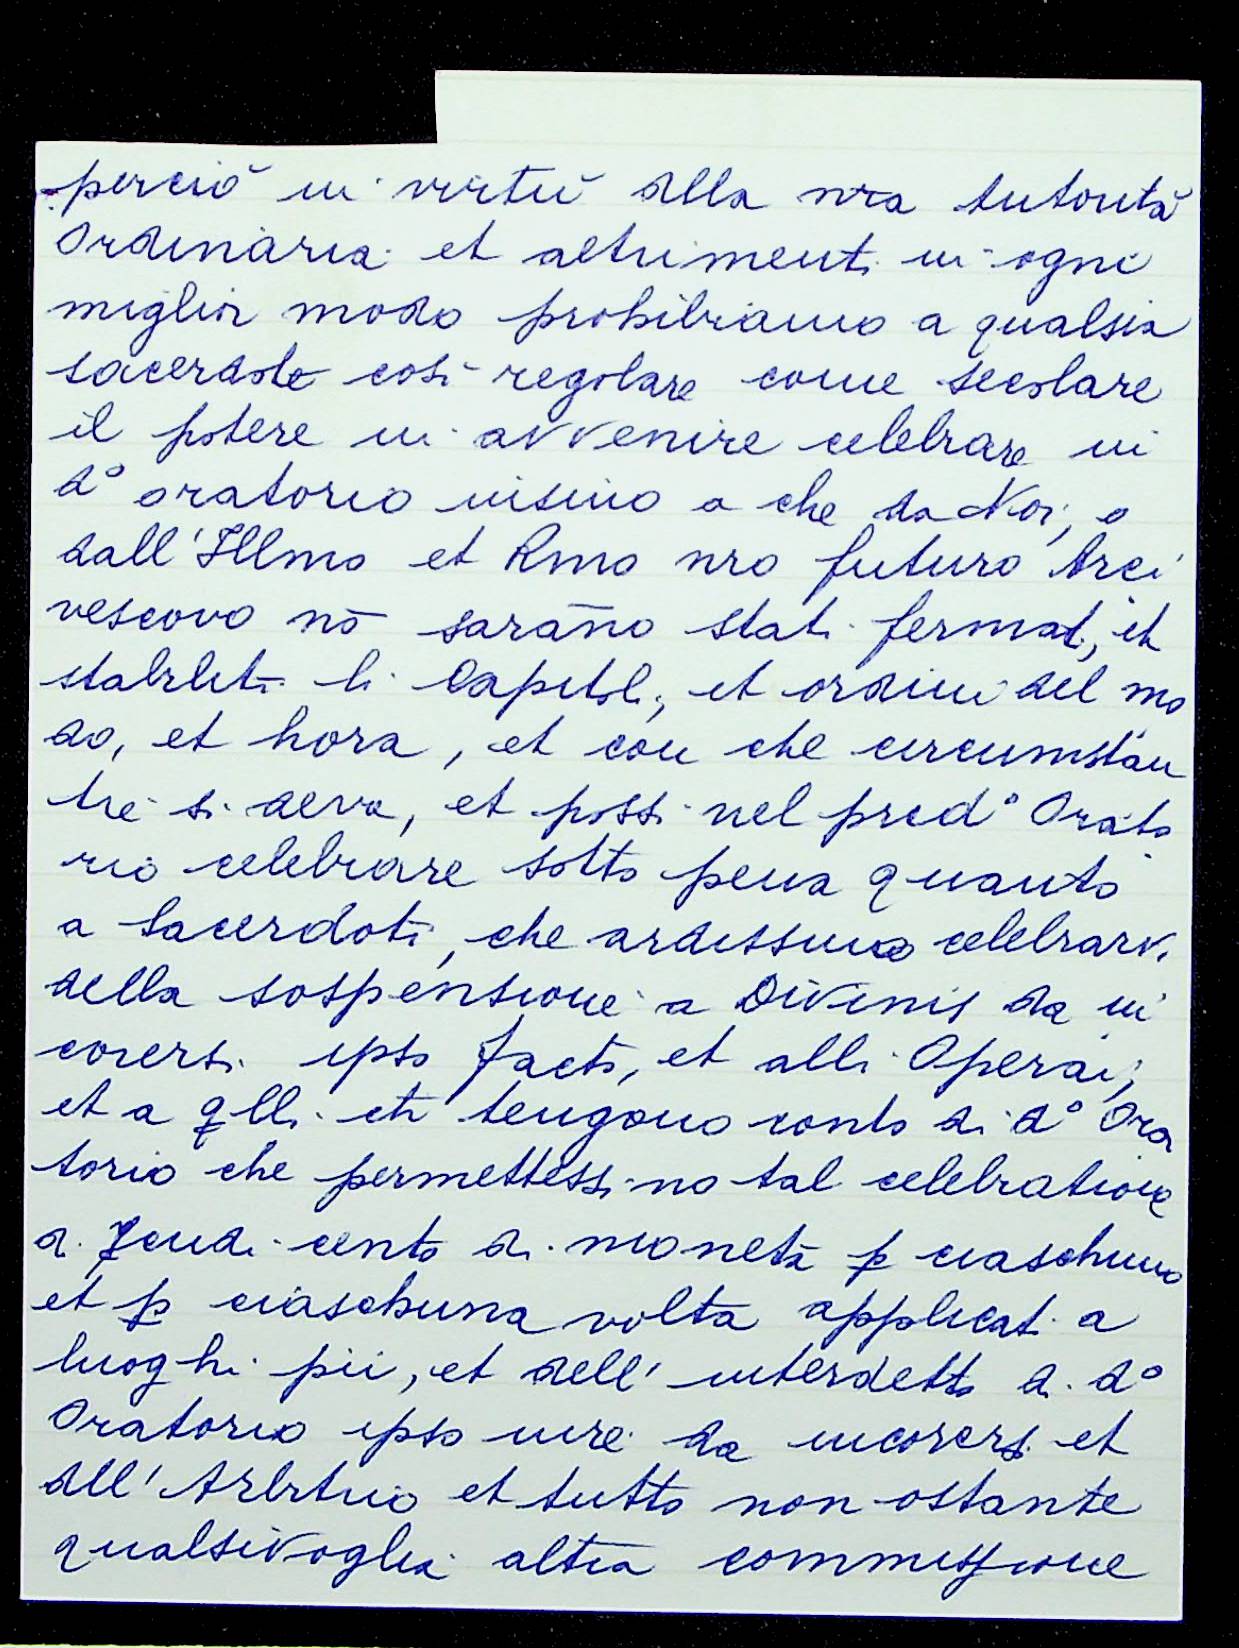 perciò in virtù della nra Autorità
Ordinaria et altrimenti in ogni
miglior modo prohibiamo a qualsia
sacerdote così regolare come secolare
il potere in avvenire celebrare in
d° oratorio insino a che da Noi, o
dall'Illmo et Rmo nro futuro Arci
vescovo nō sarāno stati fermati, et
stabiliti li Capitoli, et ordini del mo
do, et hora, et con che circumstan
tie si deva, et possi nel pred° Orato
rio celebrare sotto pena quanto
a Sacerdoti, che ardissino celebrarvi
della sospensione a Divinis da in
corersi ipso facto, et alli Operai,
et a qlli che tengono conto di d° Ora
torio che permettessino tal celebratione
di scudi cento di moneta p ciaschuno
et p ciaschuna volta applicati a
luoghi pii, et dell'interdetto di d°
Oratorio ipso iure da incorersi et
dell'Arbitrio et tutto non ostante
qualsivoglia altra commissione